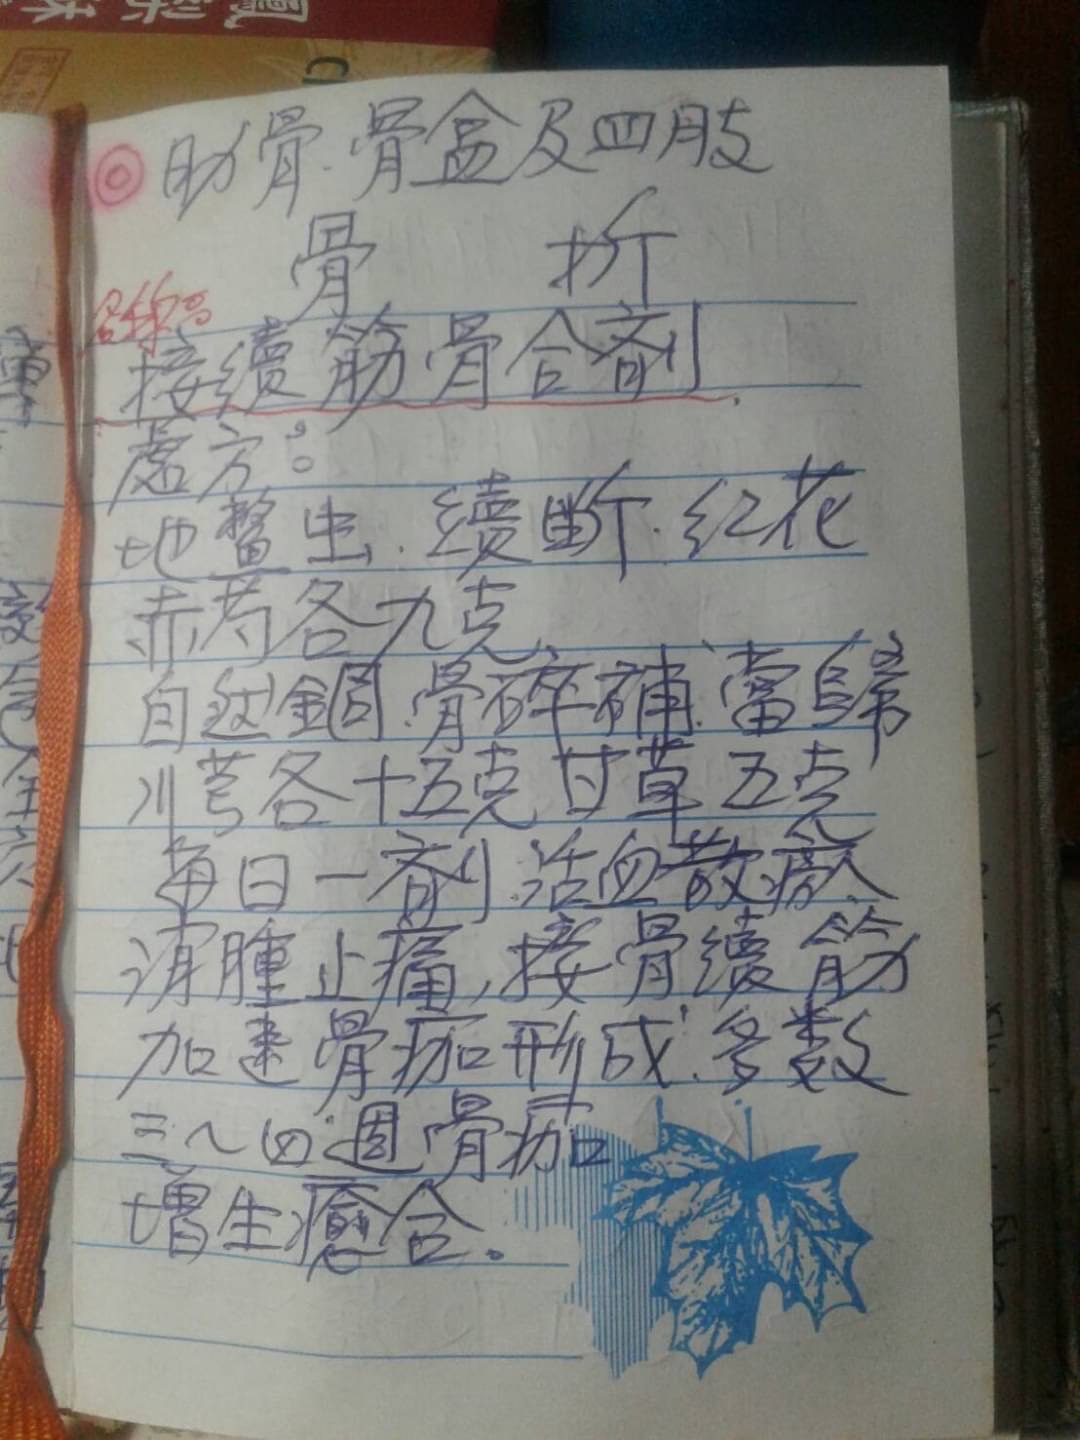 ◎肋骨.骨盒及四肢
骨 折
名称:
接續筋骨合劑.
處方:
地鱉虫.續断.红花
赤芍各九克
自然銅.骨碎補.當歸
川芎各十五克甘草五克
每日一劑.活血散瘀.
消腫止痛,接骨續筋
加速骨痂形成.多数
三~四週骨痂
增生癒合.